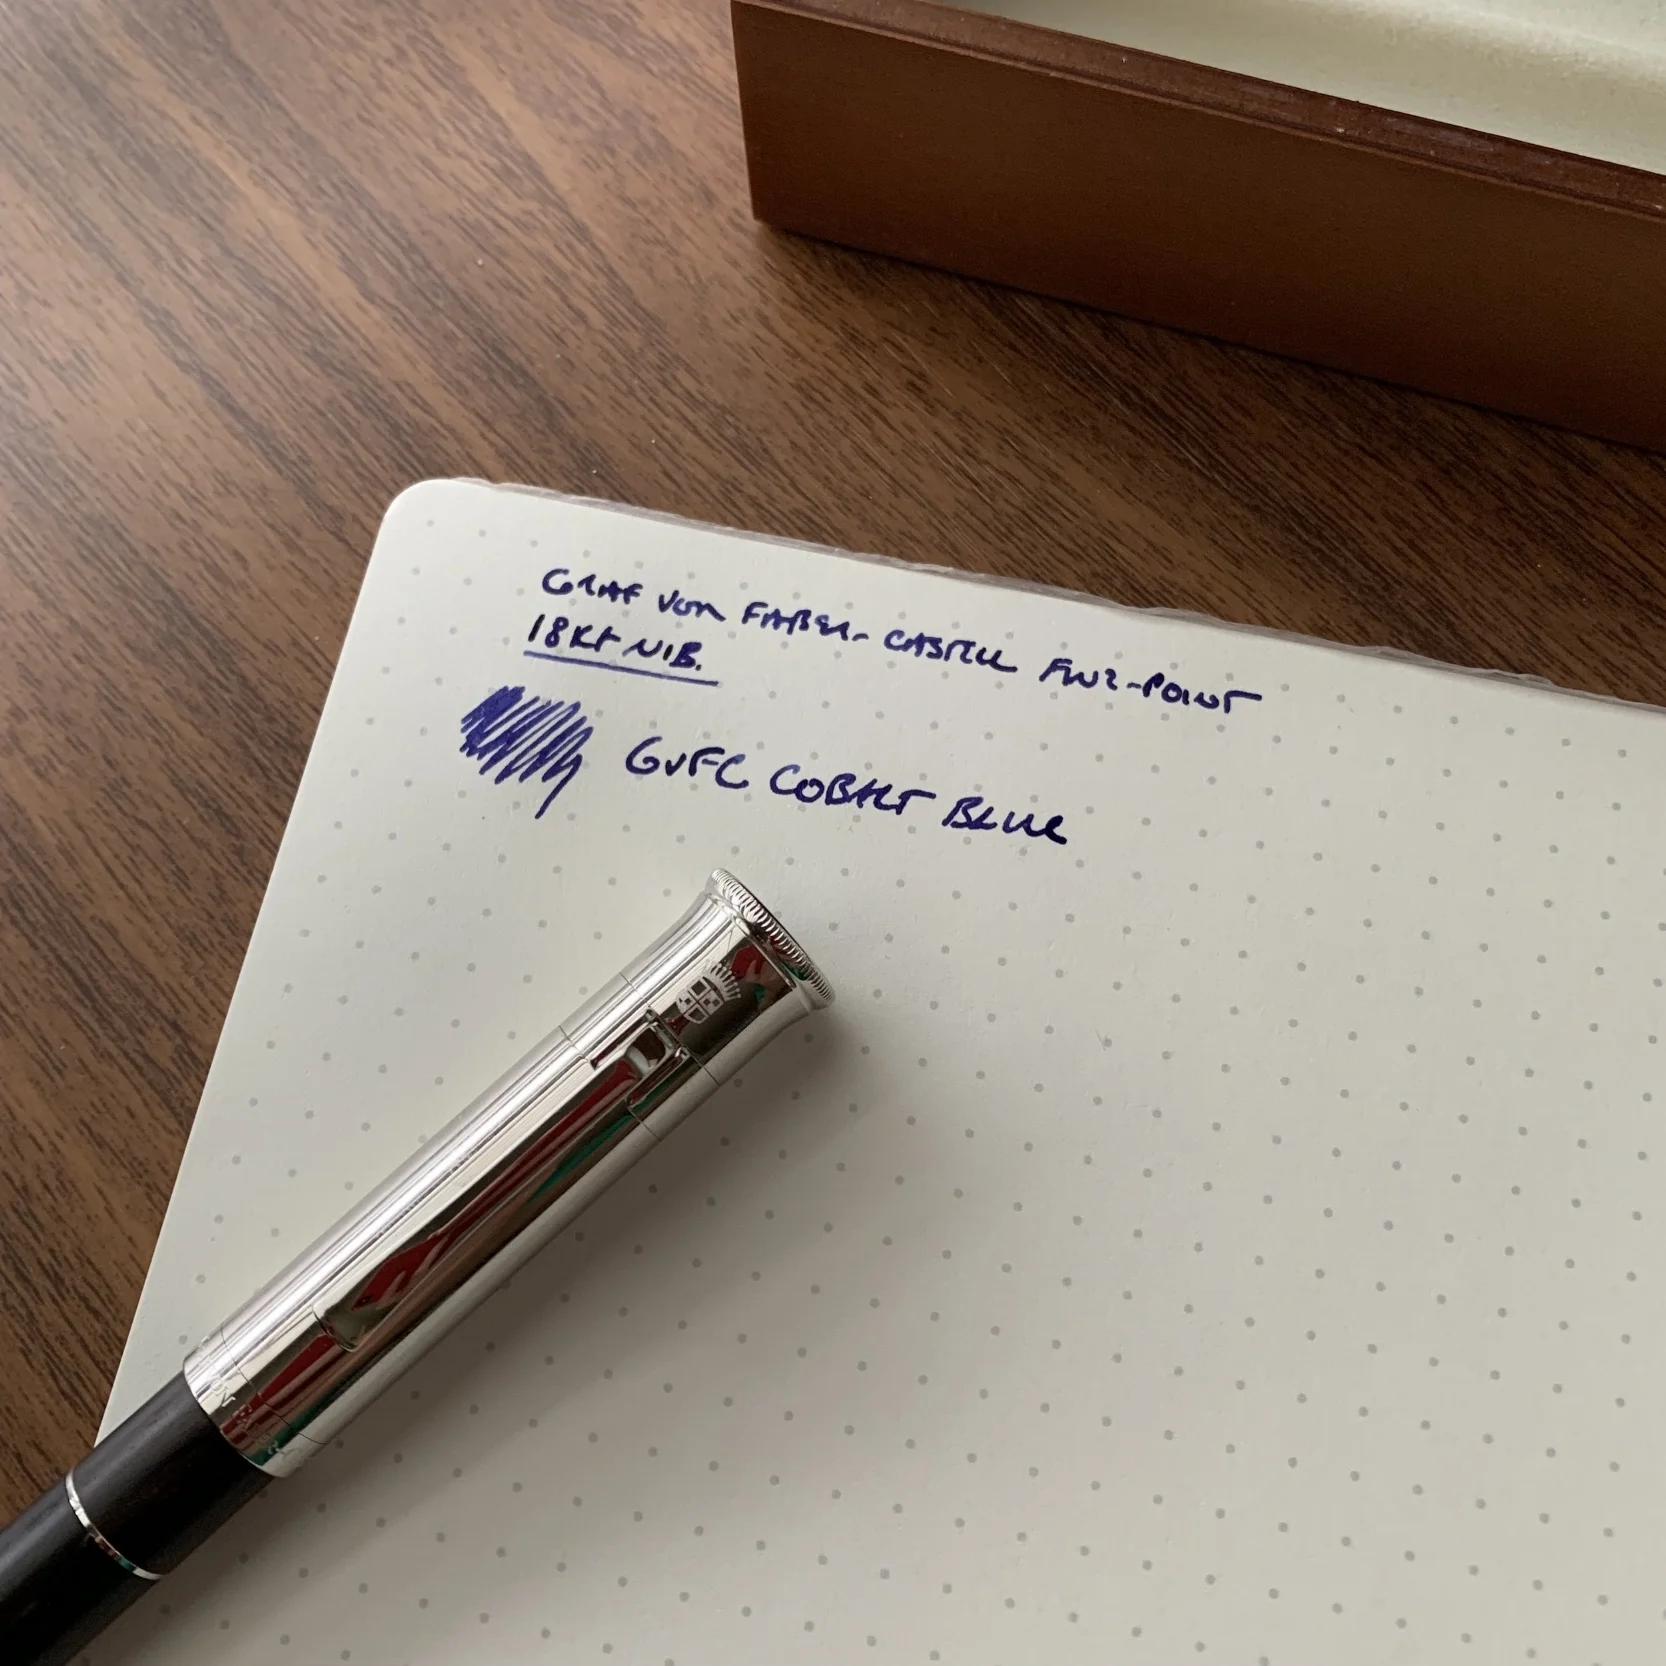 GRAF VON FABER-CASTELL FINE-POINT
18Kt NIB.
GvFC COBALT BLUE
VON FA